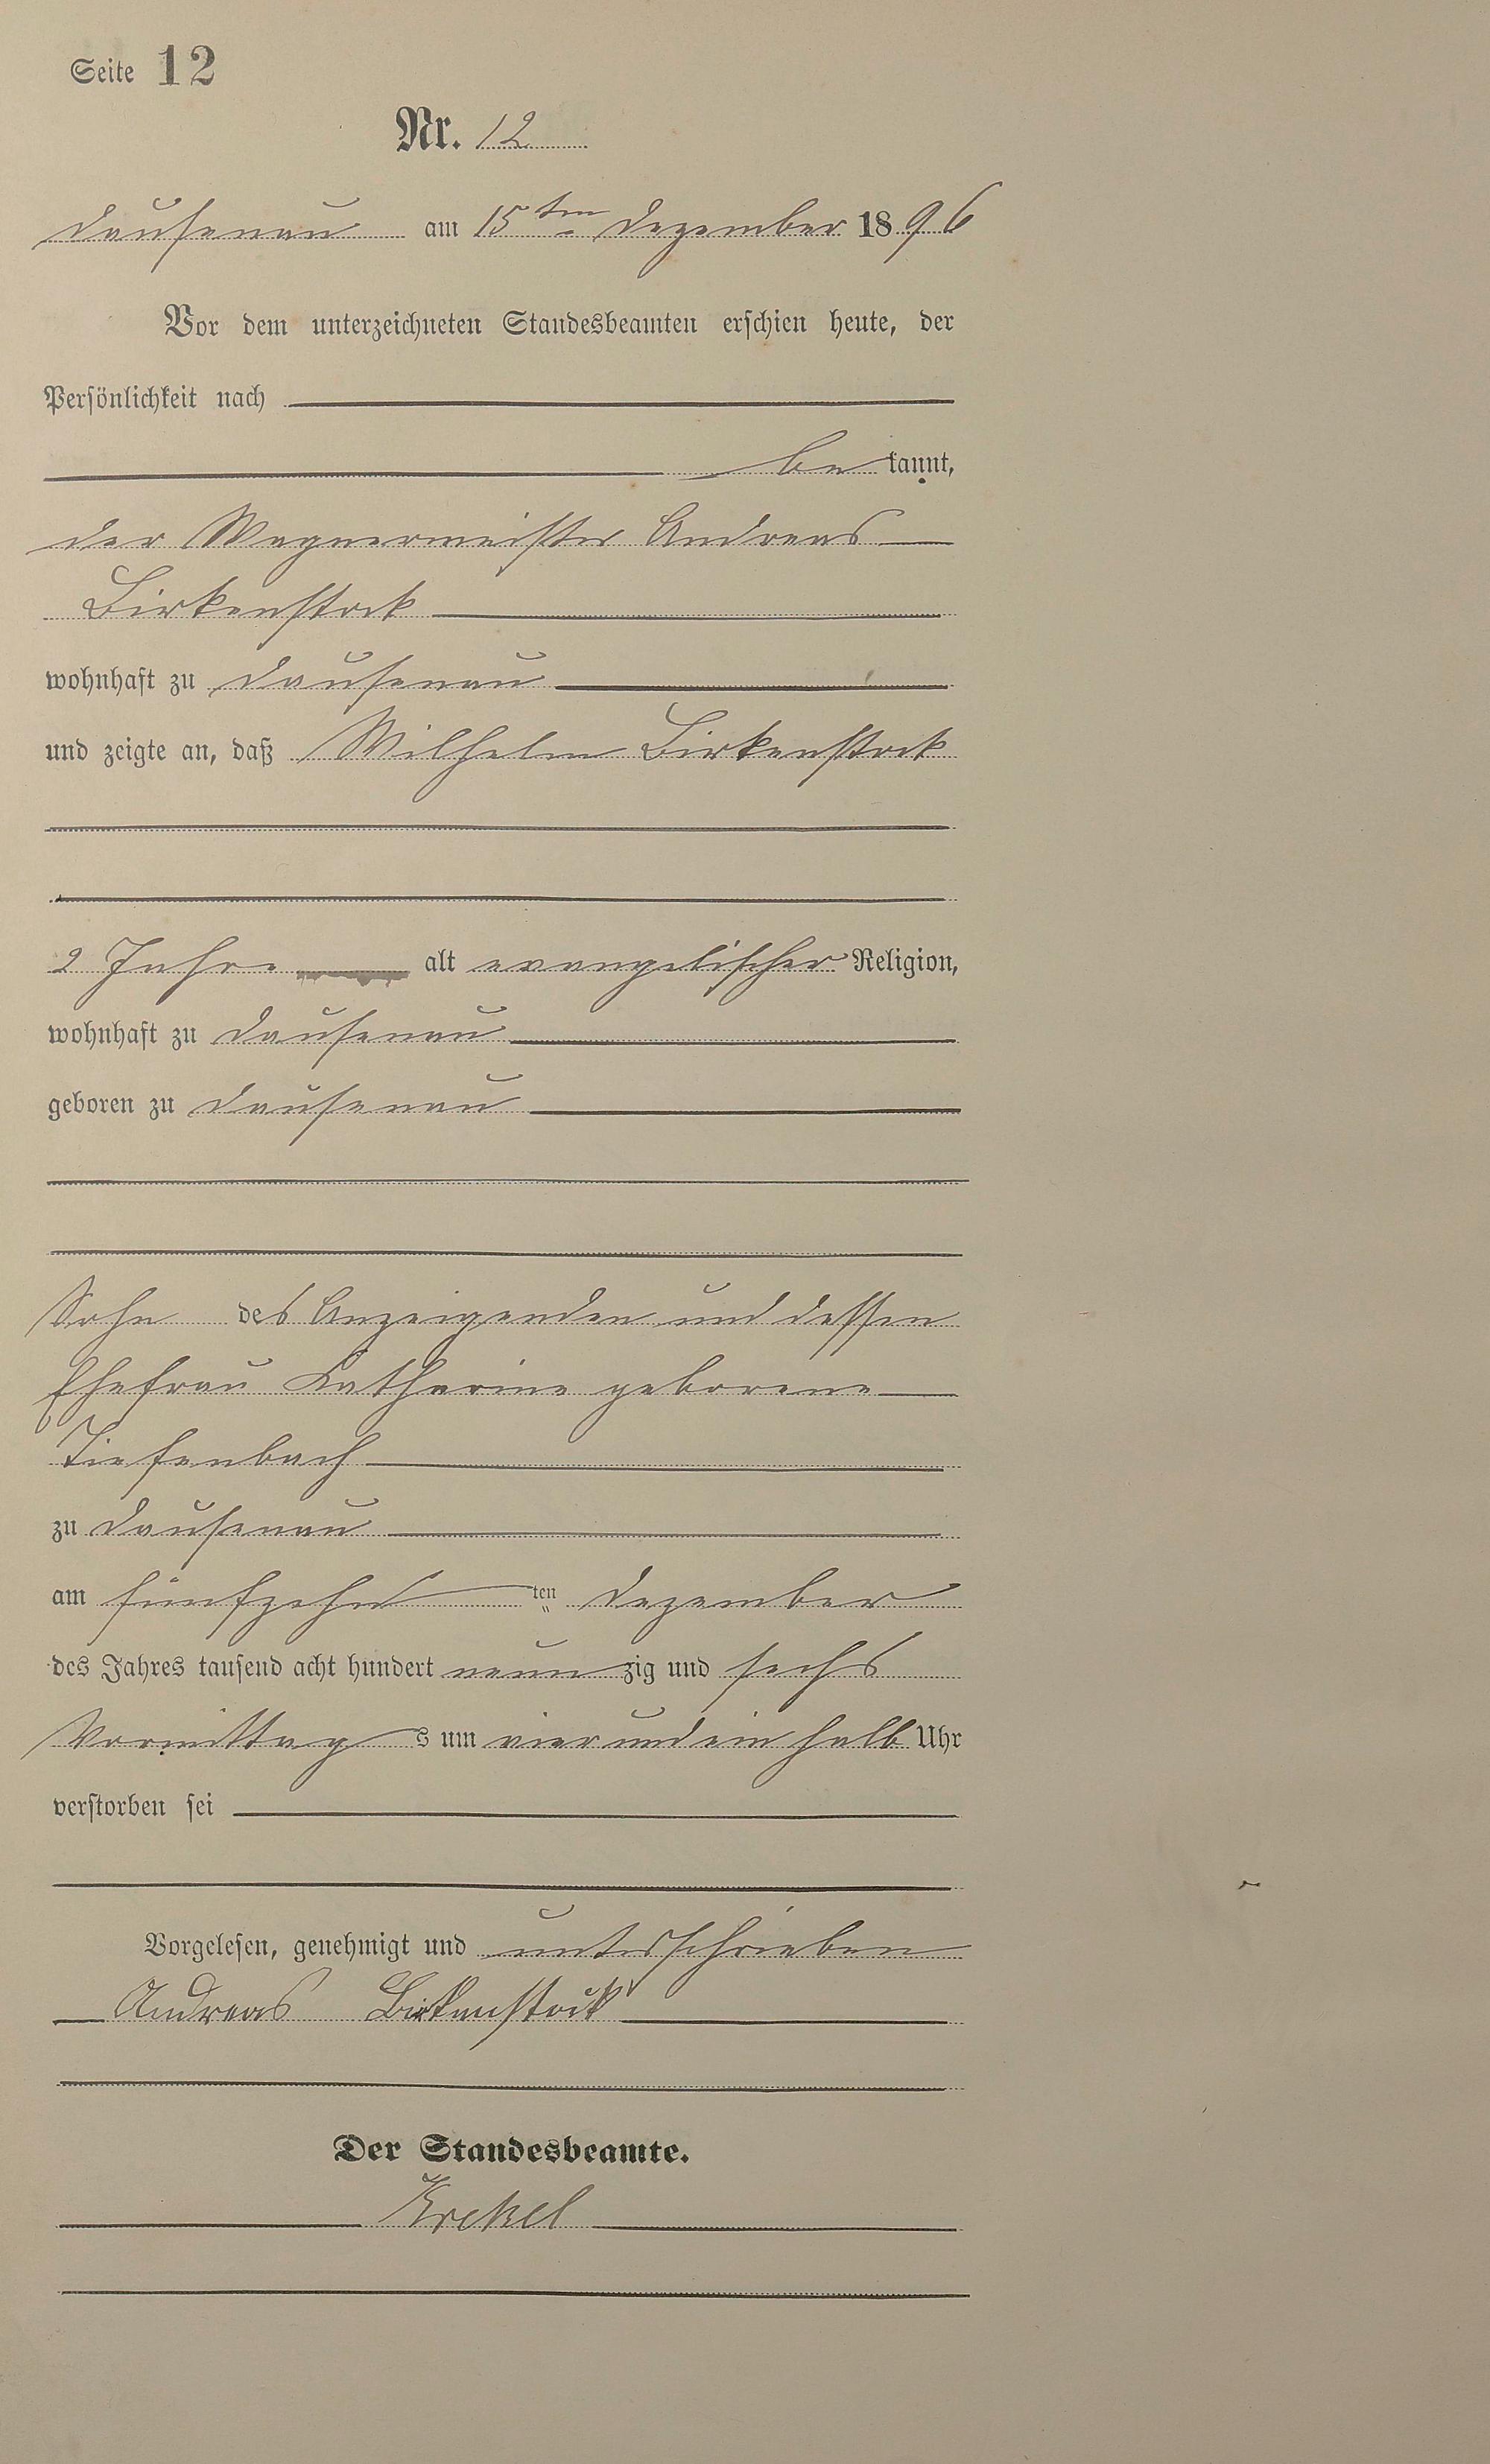 Seite 12
Nr. 12
Dausenau am 15ten Dezember 1896
Vor dem unterzeichneten Standesbeamten erschien heute, der
Persönlichkeit nach
be kannt,
der Wagnermeister Andreas
Birkenstock
wohnhaft zu Dausenau
und zeigte an, daß Wilhelm Birkenstock
2 Jahre alt evangelischer Religion,
wohnhaft zu Dausenau
geboren zu Dausenau
Sohn des Anzeigenden und dessen
Ehefrau Katharine geborene
Tiefenbach
zu Dausenau
am fünfzehn ten Dezember
des Jahres tausend acht hundert neun zig und sechs
Vormittag s um vier und ein halb Uhr
verstorben sei
Vorgelesen, genehmigt und unterschrieben
Andreas Birkenstock
Der Standesbeamte.
Krekel